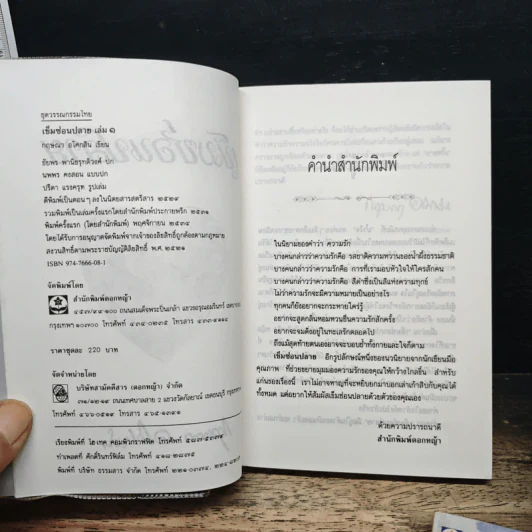 ชุดวรรณกรรมไทย
เข็มซ่อนปลาย เล่ม ๑
กฤษณา อโศกสิน เขียน
ชัยพร พานิชรุทติวงศ์ ปก
นพพร คงสอน แบบปก
ปรีดา แรงครุฑ รูปเล่ม
ตีพิมพ์เป็นตอนๆ ลงในนิตยสารสตรีสาร ๒๕๒๙
รวมพิมพ์เป็นเล่มครั้งแรกโดยสำนักพิมพ์ประกายพรึก ๒๕๓๑
พิมพ์ครั้งแรก (โดยสำนักพิมพ์) พฤศจิกายน ๒๕๓๔
โดยได้รับการอนุญาตจัดพิมพ์จากเจ้าของลิขสิทธิ์ถูกต้องตามกฎหมาย
สงวนสิทธิ์ตามพระราชบัญญัติลิขสิทธิ์ พ.ศ. ๒๕๒๑
ISBN 974-7666-08-1
จัดพิมพ์โดย
สำนักพิมพ์ดอกหญ้า
ถนนสมเด็จพระปิ่นเกล้า แขวงอรุณอมรินทร์
กรุงเทพฯ ๑๐๗๐๐ โทรศัพท์ ๔๓๔-๐๒๓๕ โทรสาร
ราคาชุดละ 220 บาท
จัดจำหน่ายโดย
บริษัทสามัคคีสาร (ดอกหญ้า) จำกัด
ถนนเทศบาลสาย ๒ แขวงวัดกัลยาณ์ เขตธนบุรี กรุงเทพฯ
โทรศัพท์ ๔๖๖-๐๕๑๙ โทรสาร ๔๖๕-๑๓๔๑
เรียงพิมพ์ที่ ไฮ เทค คอมพิวกราฟฟิค โทรศัพท์
ทำเพลทที่ ศักดิ์รินทร์ฟิล์ม โทรศัพท์ ๔๑๘-๒๘๔๕
พิมพ์ที่ บริษัท ธรรมสาร จำกัด โทรศัพท์
คำนำสำนักพิมพ์
ในนิยามของคำว่า ความรัก
บางคนกล่าวว่าความรักคือ รสชาติความหวานของน้ำผึ้งธรรมชาติ
บางคนกล่าวว่าความรักคือ การที่เรามอบหัวใจให้ใครสักคน
บางคนกล่าวว่าความรักคือ สีดำซึ่งเป็นสีแห่งความทุกข์
ไม่ว่าความรักจะมีความหมายเป็นอย่างไร
ทุกคนก็ยังอยากจะกระหายใคร่รู้
อยากจะสูดกลิ่นหอมหวนชื่นความรักสักครั้ง
อยากจะจมดิ่งอยู่ในทะเลรักตลอดไป
ถึงแม้สุดท้ายตนเองอาจจะบอบช้ำทั้งกายและใจก็ตาม
เข็มซ่อนปลาย อีกรูปลักษณ์หนึ่งของนวนิยายจากนักเขียนมือ
คุณภาพ ที่ช่วยขยายมุมมองความรักของคุณให้กว้างไกลขึ้น สำหรับ
แก่นของเรื่องนี้ เราไม่อาจหาญที่จะหยิบยกมาบอกเล่าเก้าสิบกับคุณได้
ทั้งหมด แต่อยากให้สัมผัสเข็มซ่อนปลายด้วยตัวของคุณเอง
ด้วยความปรารถนาดี
สำนักพิมพ์ดอกหญ้า